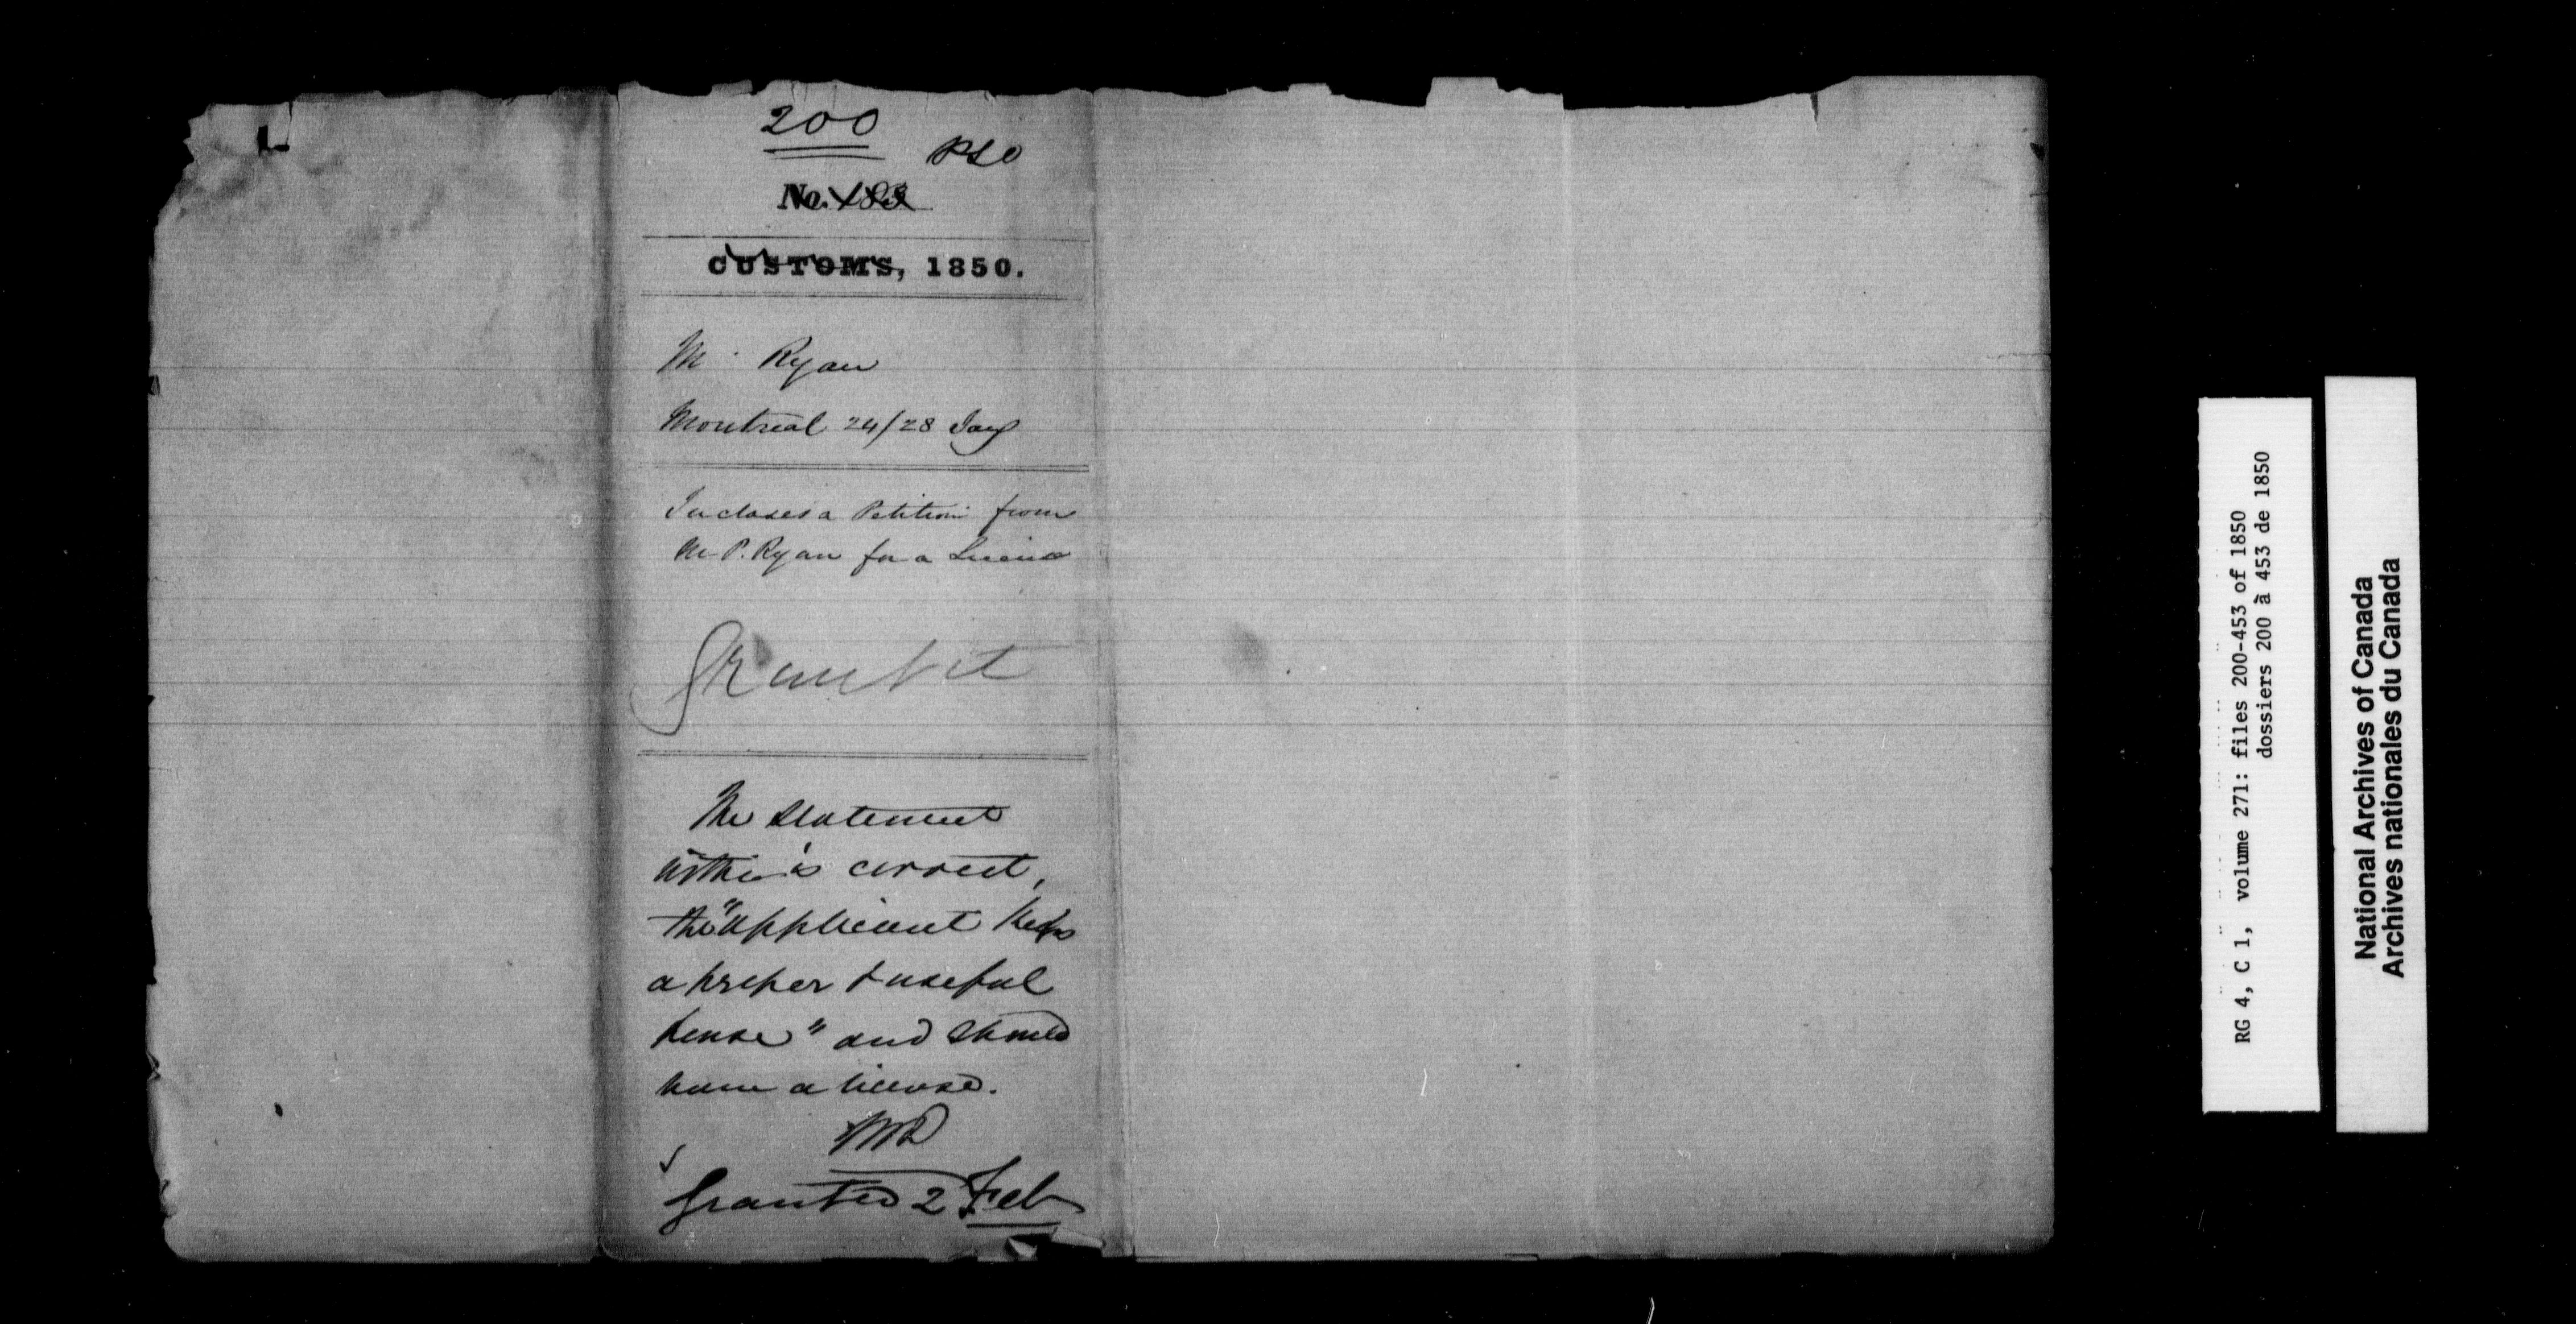 200
PSO
No. 183
CUSTOMS, 1850.
M. Ryan
Montreal 24/28 Jany
Incloses a Petition from
M. P. Ryan for a Licence
Grant it
The statement
within is correct,
the "applicant keeps
a proper & useful
house" and should
have a license.
Granted 2 Feb
RG 4, C 1, volume 271: files 200-453 of 1850
dossiers 200 à 453 de 1850
National Archives of Canada
Archives nationales du Canada